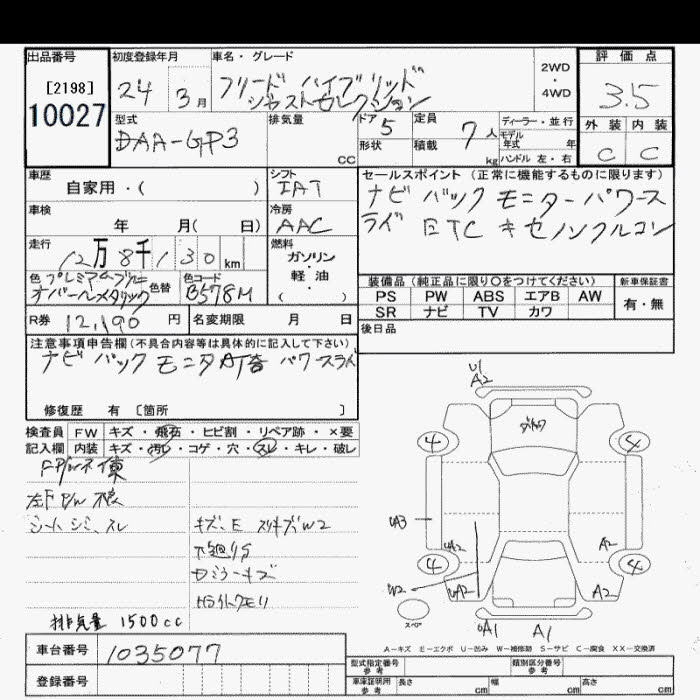 出品番号 初度登録年月 車名・グレード 2WD・4WD 評価点
[2198] 24 3月 フリード ハイブリッド 3.5
10027 ジャストセレクション
型式 排気量 ドア 5 定員 7人 ディーラー・並行 外装 内装
DAA-GP3 cc 形状 積載 kg モデル年式 年 ハンドル 左・右 C C
車歴 シフト セールスポイント(正常に機能するものに限ります)
自家用・( ) IAT ナビ バック モニター パワース
車検 冷房 ライド ETC キセノン クルコン
年 月( 日) AAC
走行 燃料
12万8千130km ガソリン・軽油・( )
色 プレミアムブルー 色替 色コード 装備品(純正品に限り○をつけてください) 新車保証書
オパールメタリック B578M PS PW ABS エアB AW 有・無
SR ナビ TV カワ
R券 12,190円 名変期限 月 日 後日品
注意事項申告欄(不具合内容等は具体的に記入して下さい)
ナビ バック モニタ パワスライ
修復歴 有 [箇所 ]
検査員 FW キズ・飛石・ヒビ割・リペア跡・×要
記入欄 内装 キズ・汚れ・コゲ・穴・スレ・キレ・破し
左F P/W
シート シミ、スレ
キズ、E スリキズ W2
下廻りS
ドミラーキズ
排気量 1500cc
U1
A2
4 4
UA3
UA2 A2
4 4
W2 UA2 A2
スペア
UA1 A1
A-キズ E-エクボ U-凹み W-補修跡 S-サビ C-腐食 XX-交換済
車台番号 1035077
登録番号
型式指定番号 参考 類別区分番号 参考
車庫証明用 参考 長さ cm 幅 cm 高さ cm